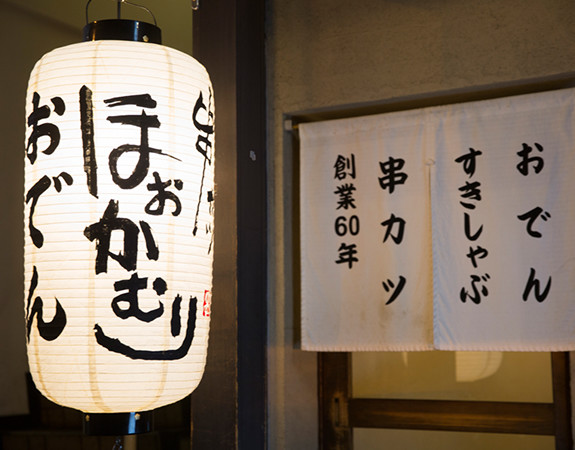 串カツ
ほぉかむり
おでん
おでん
すきしゃぶ
串カツ
創業60年